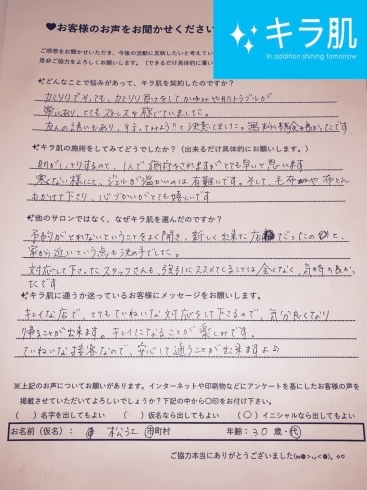 キラ肌
In addition shining tomorrow
♥お客様のお声をお聞かせください
ご感想をお聞かせいただき、今後の活動に反映したいと考えてい
是非ご協力をよろしくお願いします。（できるだけ具体的に書い
どんなことで悩みがあって、キラ肌を契約したのですか？
カミソリでそっても、カミソリ負けをしてかゆみや肌トラブルが
常にあり、とてもストレスを感じていました。
友人の誘いもあり、行ってみよう!!と決意しました。無料い料金も良かったです
キラ肌の施術をしてみてどうでしたか？（出来るだけ具体的にお願いします。）
肌がしっとりするのと、1人で施術をされますがとても早いと思います
寒くない様にと、ジェルが温かいのは有難いです。そして、毛布や布とん
もかけて下さり、心づかいがとても嬉しいです
他のサロンではなく、なぜキラ肌を選んだのですか？
予約がとれないということをよく聞き、新しく出来た店だったのと、
家から近いという点も決め手でした。
対応して下さったスタッフさんも、強引にススメてくることは全くなく、気持の良かっ
たです
キラ肌に通うか迷っているお客様にメッセージをお願いします。
キレイな店で、とてもていねいな対応をして下さるので、気分良くなり
帰ることが出来ます。キレイになることが楽しみです。
ていねいな接客なので、安心して通うことが出来ますよ♪
※上記のお声についてお願いがあります。インターネットや印刷物などにアンケートを基にしたお客様の声を
掲載させていただいてよろしいでしょうか？下記の中から〇印をお付け下さい。
（　）名字を出してもよい　（　）仮名なら出してもよい　（〇）イニシャルなら出してもよい
お名前（仮名）：　松江　市町村　年齢：30歳・代
ご協力本当にありがとうございました